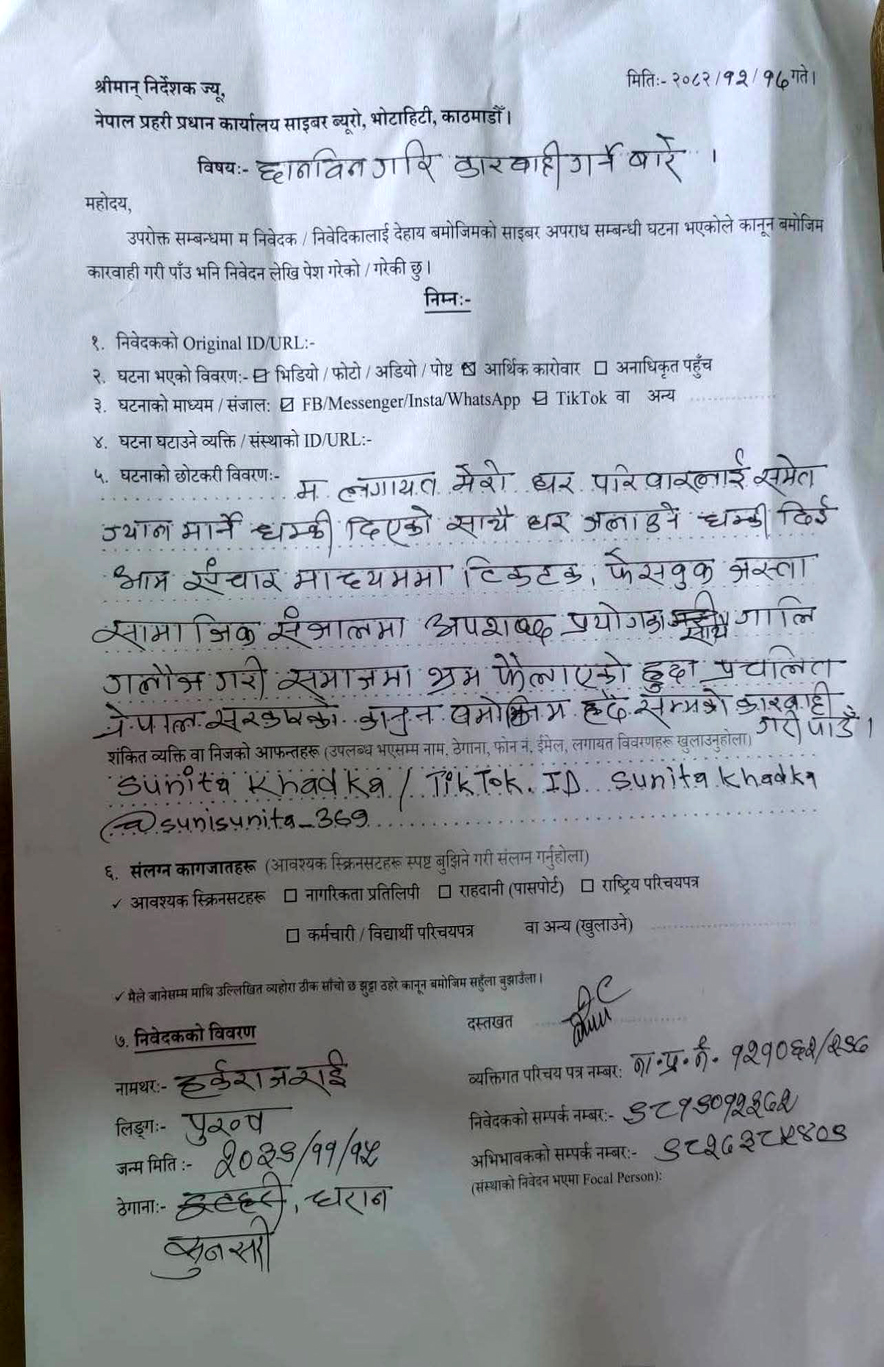 श्रीमान् निर्देशक ज्यू,
मितिः- २०८२/१२/१७ गते।
नेपाल प्रहरी प्रधान कार्यालय साइबर ब्यूरो, भोटाहिटी, काठमाडौँ।
विषयः- छानविन गरि कारवाही गर्ने बारे ।
महोदय,
उपरोक्त सम्बन्धमा म निवेदक / निवेदिकालाई देहाय बमोजिमको साइबर अपराध सम्बन्धी घटना भएकोले कानून बमोजिम
कारवाही गरी पाँउ भनि निवेदन लेखि पेश गरेको / गरेकी छु।
निम्नः-
१. निवेदकको Original ID/URL:-
२. घटना भएको विवरणः- ☑ भिडियो / फोटो / अडियो / पोष्ट ☒ आर्थिक कारोवार ☐ अनाधिकृत पहुँच
३. घटनाको माध्यम / संजालः ☑ FB/Messenger/Insta/WhatsApp ☑ TikTok वा अन्य
४. घटना घटाउने व्यक्ति / संस्थाको ID/URL:-
५. घटनाको छोटकरी विवरणः- म लगायत मेरो घर परिवारलाई समेत
ज्यान मार्ने धम्की दिएको साथै घर जलाउने धम्की दिई
आम संचार माध्यममा टिकटक, फेसवुक जस्ता
सामाजिक संजालमा अपशब्द प्रयोगका साथै गालि
गलौज गरी समाजमा भ्रम फैलाएको हुदा प्रचलित
नेपाल सरकारको कानुन बमोजिम हदै सम्मको कारवाही
गरी पाउँ।
शंकित व्यक्ति वा निजको आफन्तहरू (उपलब्ध भएसम्म नाम, ठेगाना, फोन नं, ईमेल, लगायत विवरणहरू खुलाउनुहोला)
sunita khadka / TikTok. ID sunita khadka
@sunisunita_369
६. संलग्न कागजातहरू (आवश्यक स्क्रिनसटहरू स्पष्ट बुझिने गरी संलग्न गर्नुहोला)
✓ आवश्यक स्क्रिनसटहरू ☐ नागरिकता प्रतिलिपी ☐ राहदानी (पासपोर्ट) ☐ राष्ट्रिय परिचयपत्र
☐ कर्मचारी / विद्यार्थी परिचयपत्र वा अन्य (खुलाउने)
✓ मैले जानेसम्म माथि उल्लिखित व्यहोरा ठीक साँचो छ झुट्ठा ठहरे कानून बमोजिम सहुँला बुझाउँला।
दस्तखत
७. निवेदकको विवरण
व्यक्तिगत परिचय पत्र नम्बरः ना.प्र.नं. १२१०६२/२३७
नामथरः- हर्कराज राई
निवेदकको सम्पर्क नम्बरः- ९८१९०१२३७२
लिङ्गः- पुरुष
अभिभावकको सम्पर्क नम्बरः- ९८२७३८५४०९
जन्म मिति :- २०३९/११/१५
(संस्थाको निवेदन भएमा Focal Person):
ठेगानाः- , धरान
सुनसरी